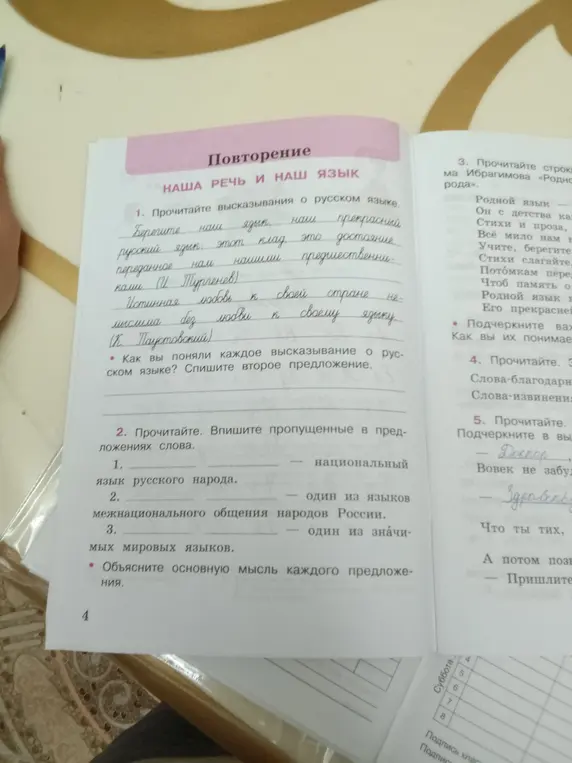 Повторение
НАША РЕЧЬ И НАШ ЯЗЫК
1. Прочитайте высказывания о русском языке.
Берегите наш язык, наш прекрасный
русский язык, этот клад, это достояние,
переданное нам нашими предшественни-
ками (И. Тургенев)
Истинная любовь к своей стране не-
мыслима без любви к своему языку.
(К. Паустовский)
• Как вы поняли каждое высказывание о рус-
ском языке? Спишите второе предложение.
2. Прочитайте. Впишите пропущенные в пред-
ложениях слова.
1. — национальный
язык русского народа.
2. — один из языков
межнационального общения народов России.
3. — один из зна́чи-
мых мировых языков.
• Объясните основную мысль каждого предложе-
ния.
4
3. Прочитайте
ма Ибрагимова
рода».
Родной язык —
Он с детства
Стихи и проза,
Всё мило нам
Учите, берегите
Стихи слагайте,
Потомкам
Чтоб память о
Родной язык
Его
• Подчеркните
Как вы их
4. Прочитайте.
Слова-
Слова-извинения
5. Прочитайте.
Подчеркните в
— Доктор,
Вовек не
—
Что ты тих,
А потом
—
Суббота
4
5
6
7
8
Подпись